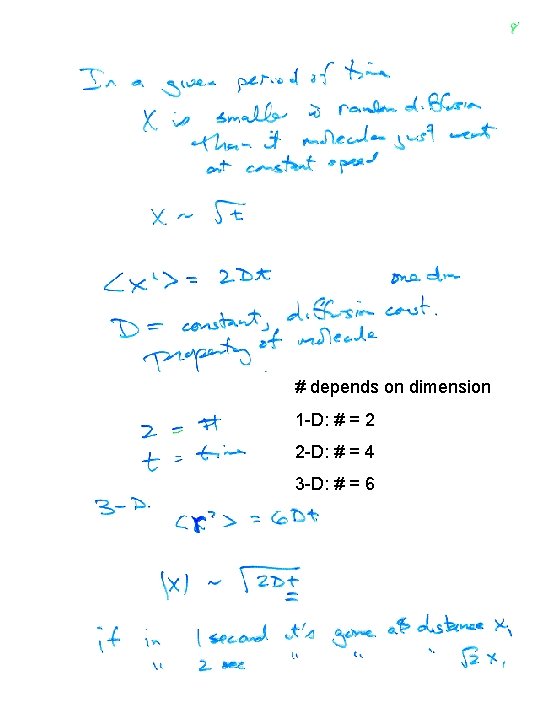 8
In a given period of time
X is smaller in random diffusion
than if molecules just went
at constant speed
X ~ √t
<x²> = 2Dt one dim
D = constant, diffusion const.
Property of molecule
# depends on dimension
2 = # 1-D: # = 2
t = time 2-D: # = 4
3-D: # = 6
3-D.
<r²> = 6Dt
|x| ~ √2Dt
if in 1 second it's gone a distance x₁
" 2 sec " " " √2 x₁